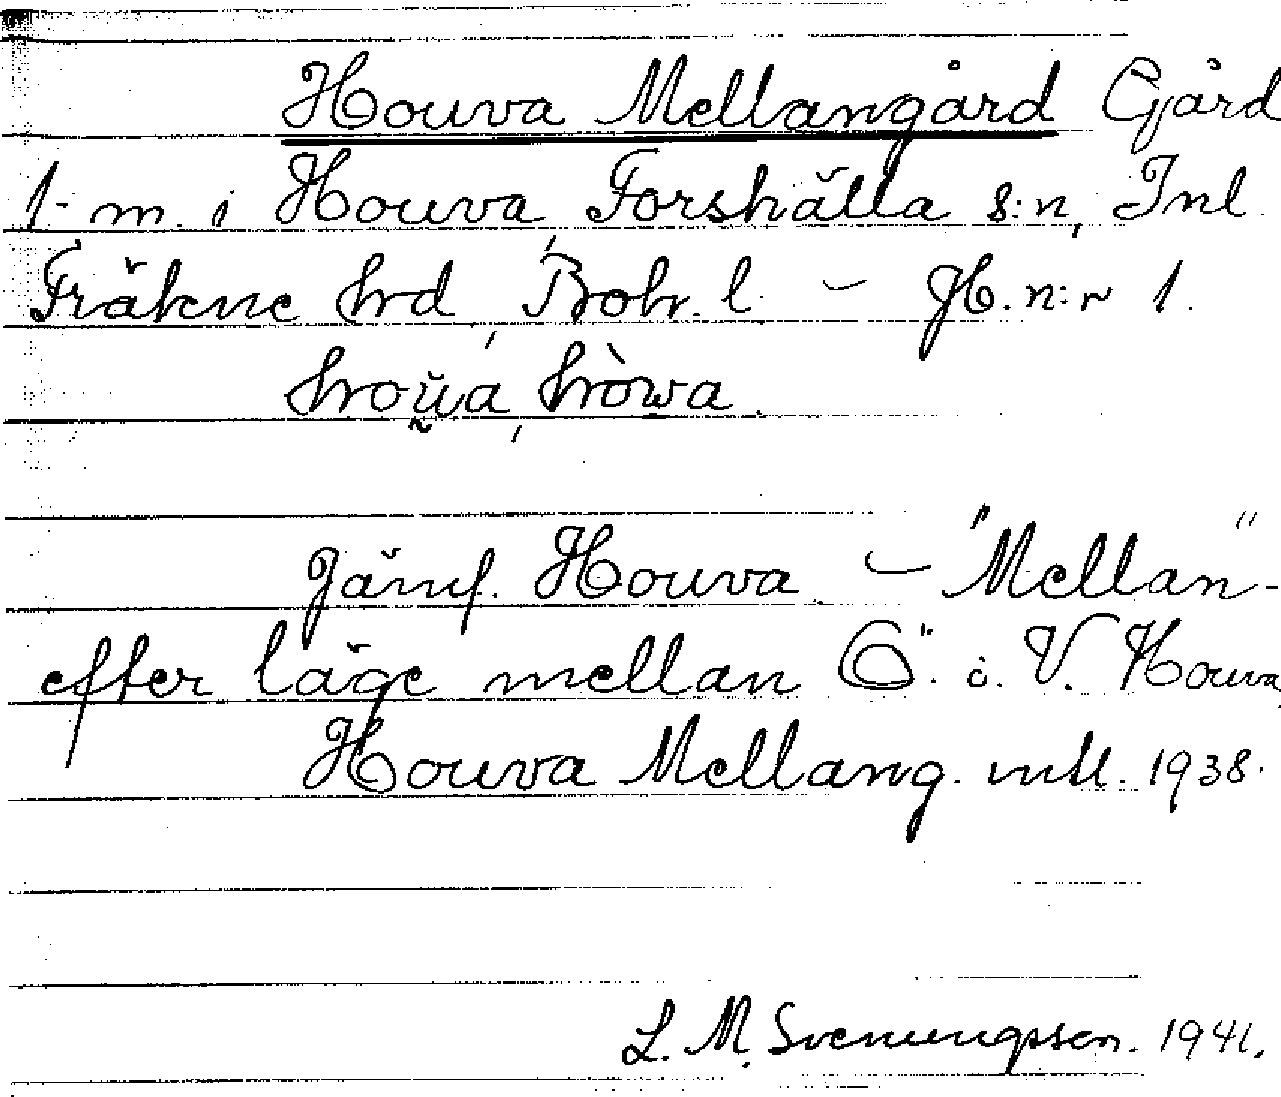 Houva Mellangård Gård
1 m. i Houva, Forshälla s:n, Inl.
Fräkne hrd, Boh. l. – Jb. n:r 1.
hoŭa, hòwa.
Jämf. Houva. – "Mellan"-
efter läge mellan Ö. o. V. Houva.
Houva Mellang. mtl. 1938.
L. M. Svenungsson. 1941.